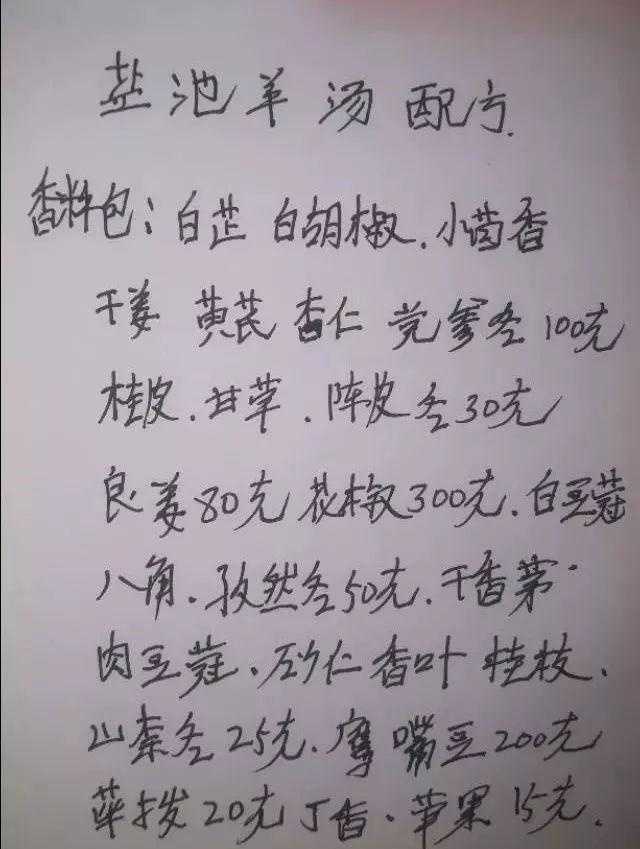 盐池羊汤配方.
香料包:白芷 白胡椒.小茴香
干姜 黄芪 杏仁 党参各100克
桂皮.甘草.陈皮各30克
良姜80克 花椒300克.白豆蔻
八角.孜然各50克.干香茅.
肉豆蔻.砂仁香叶 桂枝.
山柰各25克.鹰嘴豆200克
荜拨20克 丁香.草果15克.